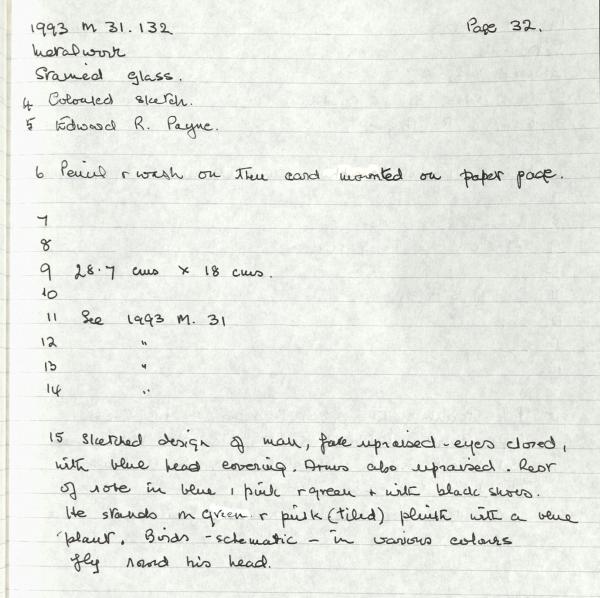 1993 M 31.132 Page 32.
Metalwork
Stained glass.
4 Coloured sketch.
5 Edward R. Payne.
6 Pencil & wash on thin card mounted on paper page.
7
8
9 28.7 cms × 18 cms.
10
11 See 1993 M. 31
12 "
13 "
14 "
15 Sketched design of man, face upraised - eyes closed,
with blue head covering. Arms also upraised. Rest
of robe in blue, pink & green & with black shoes.
He stands on green & pink (tiled) plinth with a blue
plant. Birds - schematic - in various colours
fly round his head.